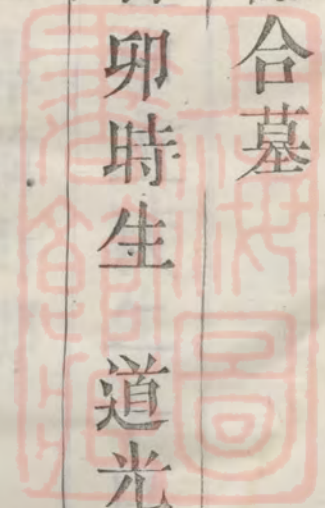 合墓
卯時生　道光